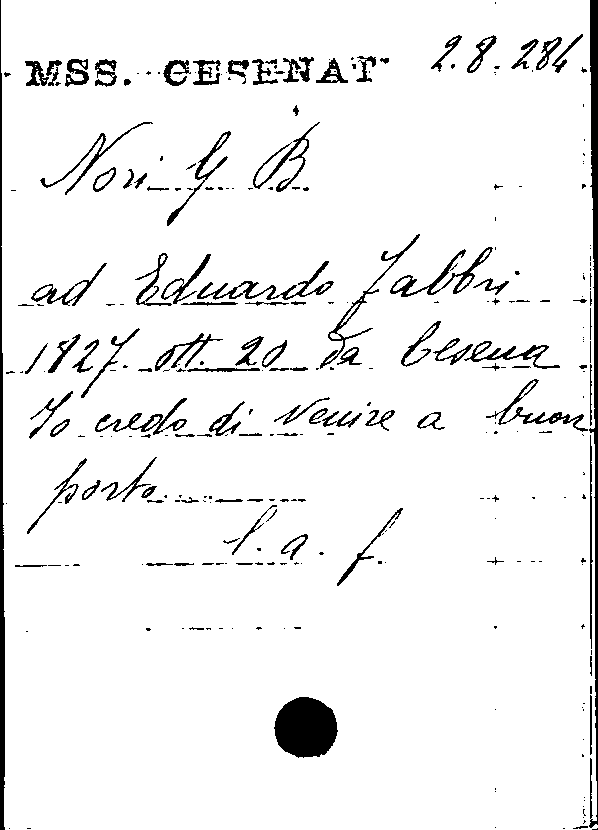 MSS. CESENAT 2.8.284
Nori G B
ad Eduardo Fabbri
1827. ott. 20 da Cesena
Io credo di venire a buon
porto....
l. a. f.